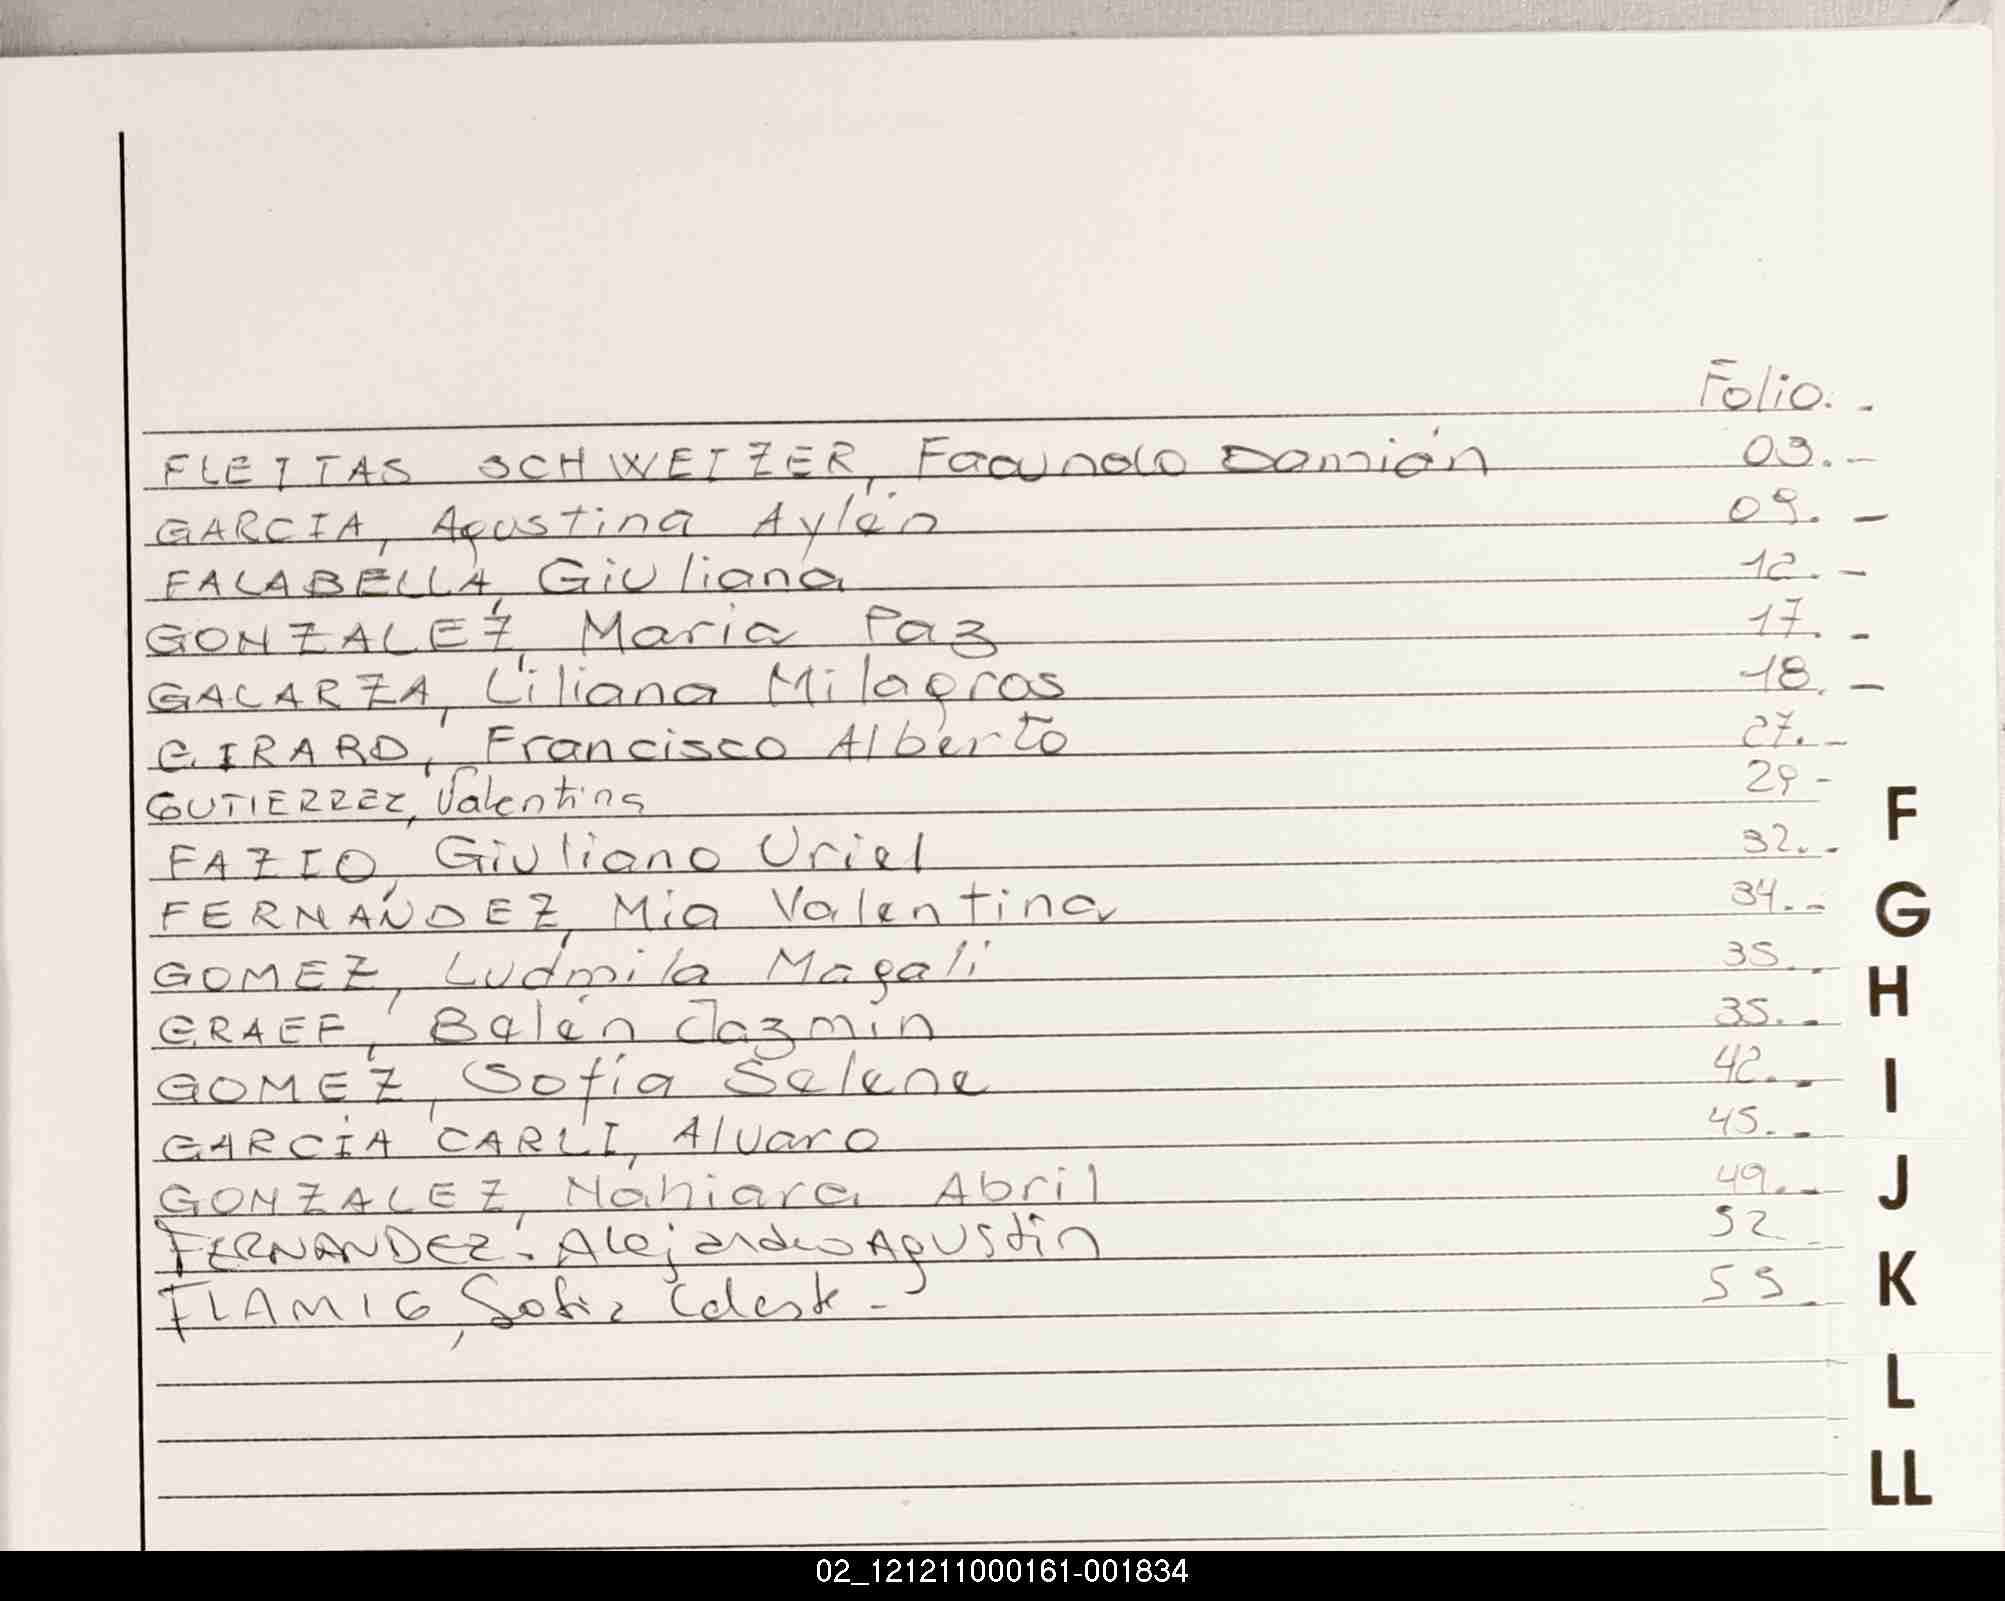 Folio. -
FLEITAS SCHWEIZER, Facundo Damián 03. -
GARCIA, Agustina Aylén 09. -
FALABELLA, Giuliana 12. -
GONZALEZ, Maria Paz 17. -
GALARZA, Liliana Milagros 18. -
GIRARD, Francisco Alberto 27. -
GUTIERREZ, Valentina 29 -
FAZIO, Giuliano Uriel 32. -
FERNANDEZ, Mia Valentina 34. -
GOMEZ, Ludmila Magali 35. -
GRAEF, Belén Jazmin 35. -
GOMEZ, Sofia Selene 42. -
GARCIA CARLI, Alvaro 45. -
GONZALEZ, Nahiara Abril 49. -
FERNANDEZ. Alejandro Agustin 52 -
FLAMIG, Sofia Celeste - -
F
G
H
I
J
K
L
LL
02_121211000161-001834